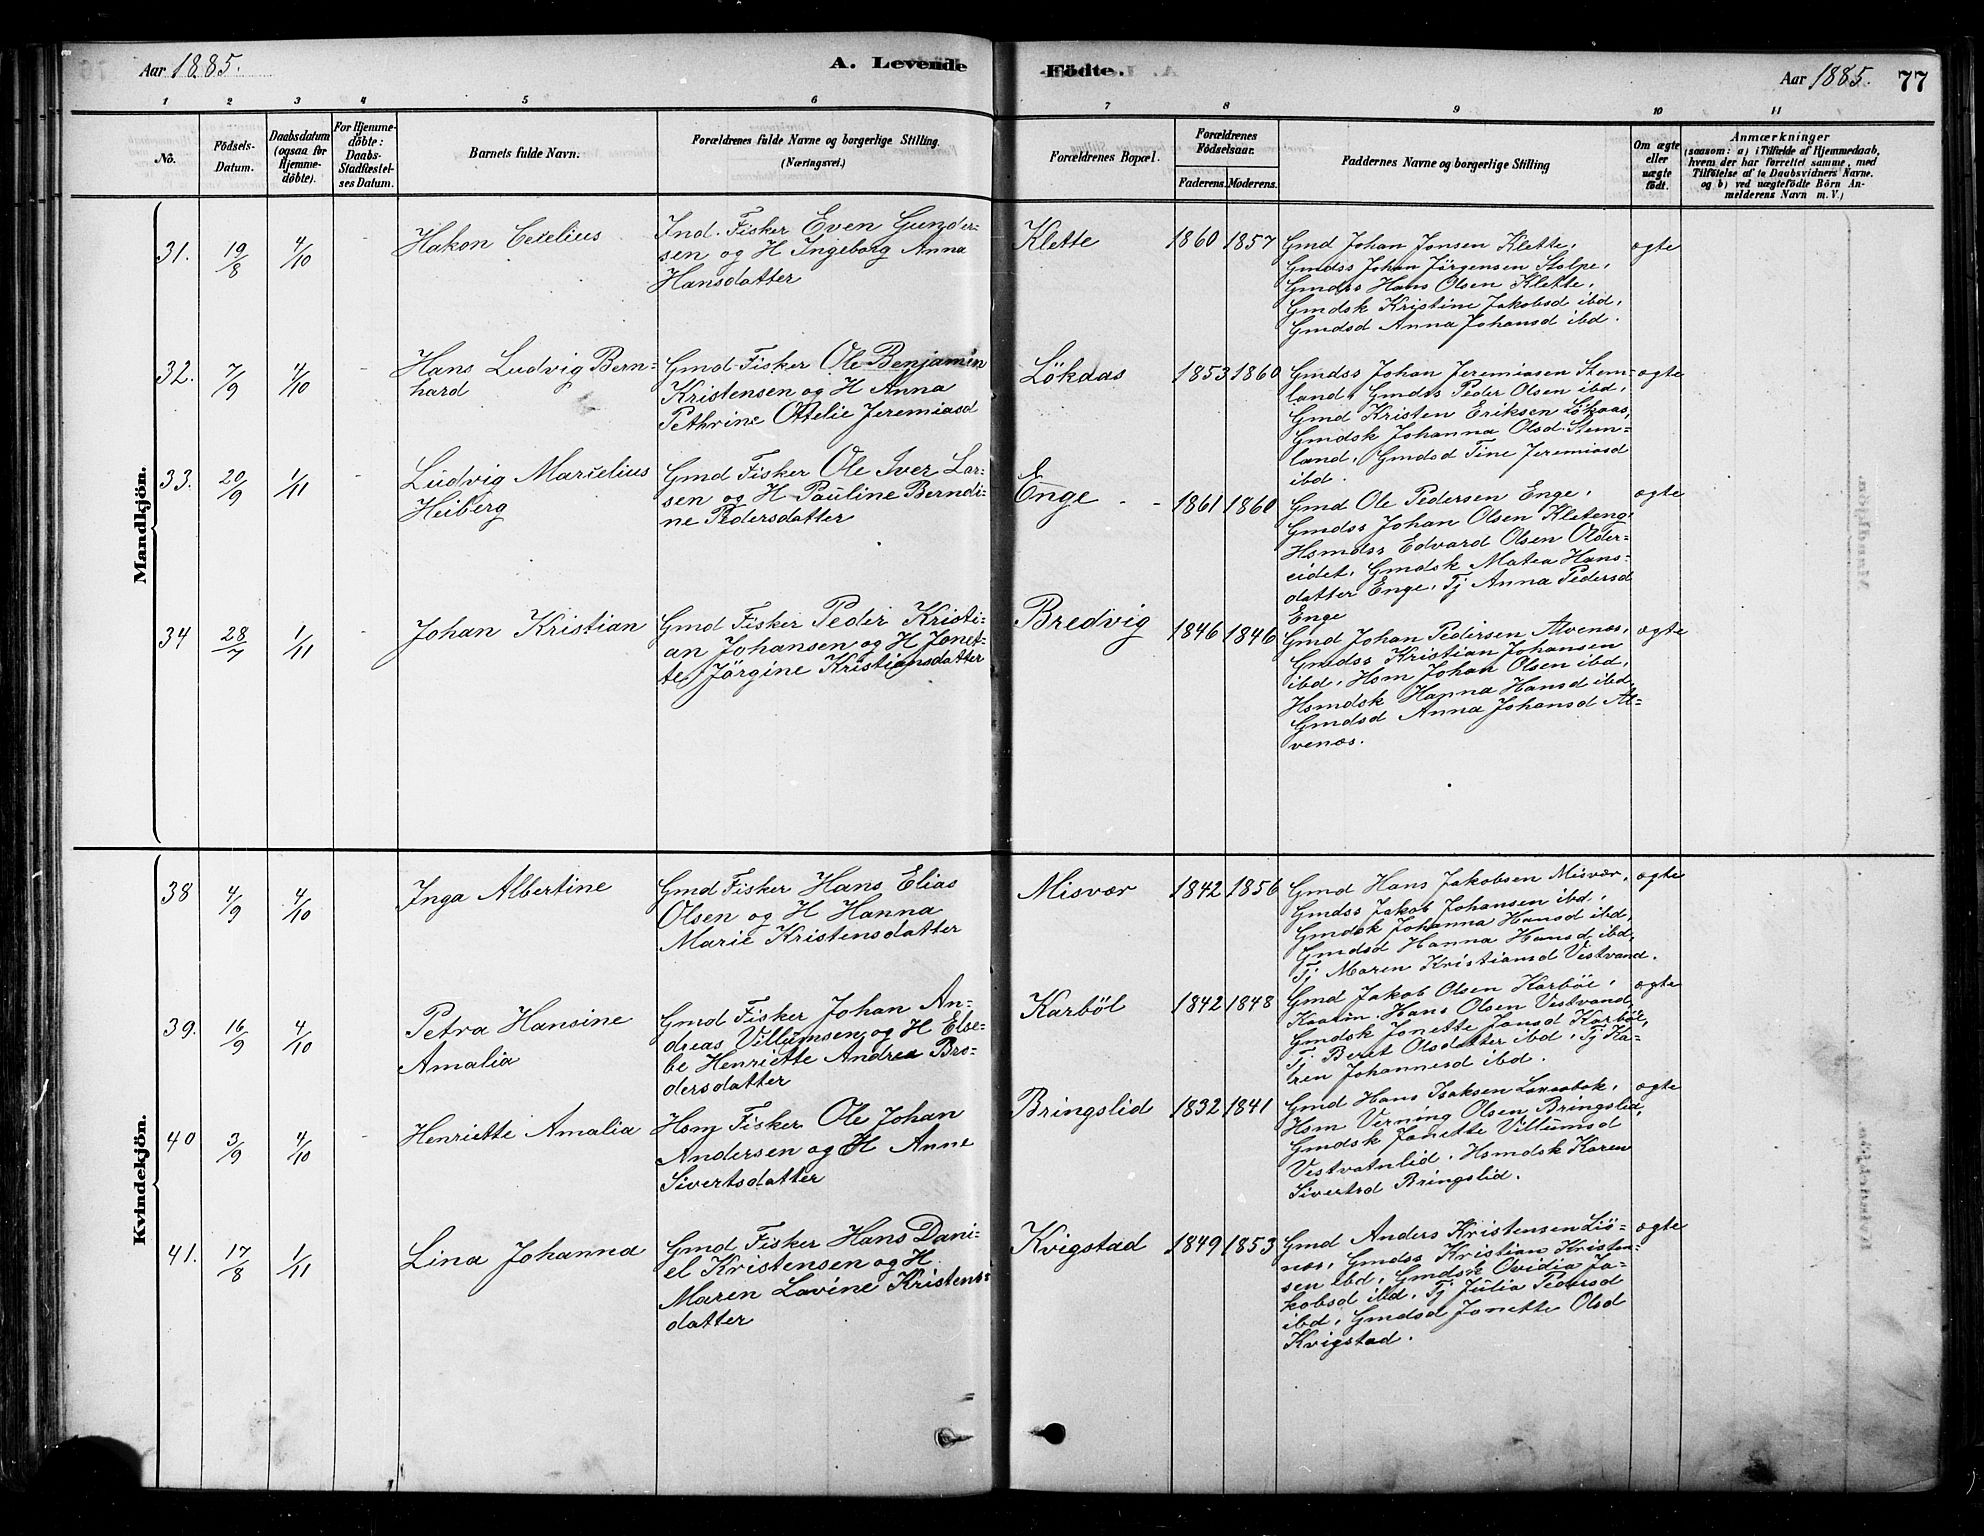 Aar 1885.
A. Levende
Födte.
Aar 1885.
77
1 2 3 4 5 6 7 8 9 10 11
No.
Födsels-
Datum.
Daabsdatum
(ogsaa for
Hjemme-
döbte).
For Hjemme-
döbte:
Daabs-
Stadfæstel-
ses Datum.
Barnets fulde Navn.
Forældrenes fulde Navne og borgerlige Stilling.
(Næringsvei.)
Forældrenes Bopæl.
Forældrenes
Födselsaar.
Faderens. Moderens.
Faddernes Navne og borgerlige Stilling
Om ægte
eller
uægte
födt.
Anmærkninger
(saasom: a) i Tilfælde af Hjemmedaab,
hvem der har forrettet samme, med
Tilföielse af to Daabsvidners Navne.
og b) ved uægtefödte Börn An-
melderens Navn m. V.)
Mandkjön.
31. 19/8 4/10 -
Hakon Cecelius
Ind. Fisker Even Gunder-
sen og H Ingeborg Anna
Hansdatter
Klette
1860 1857
Gmd Johan Jonsen Klette,
Gmdss Johan Jörgensen Stolpe,
Gmdss Hans Olsen Klette,
Gmdsk Kristine Jakobsd ibd,
Gmdsd Anna Johansd ibd.
ægte
32. 7/9 4/10 -
Hans Ludvig Bern-
hard
Gmd Fisker Ole Benjamin
Kristensen og H Anna
Pethrine Ottelie Jeremiasd
Lökaas
1853 1860
Gmdss Johan Jeremiasen Stem-
land, Gmdss Peder Olsen ibd,
Gmd Kristen Eriksen Lökaas,
Gmdsk Johanna Olsd Stem-
land, Gmdsd Tine Jeremiasd
ibd.
ægte
33. 20/9 1/11 -
Ludvig Marselius
Heiberg
Gmd Fisker Ole Iver Lar-
sen og H Pauline Berndi-
ne Pedersdatter
Enge
1861 1860
Gmd Ole Pedersen Enge,
Gmdss Johan Olsen Kleteng,
Hsmdss Edvard Olsen Older-
eidet, Gmdsk Matea Hans-
datter Enge, Tj Anna Pedersd
Enge
ægte
34 28/7 1/11 -
Johan Kristian
Gmd Fisker Peder Kristi-
an Johansen og H Jonet-
te Jörgine Kristiansdatter
Bredvig
1846 1846
Gmd Johan Pedersen Alvenæs,
Gmdss Kristian Johansen
ibd, Hsm Johan Olsen ibd,
Hsmdsk Hanna Hansd ibd,
Gmdsd Anna Johansd Al-
venæs.
ægte
Kvindekjön.
38 4/9 4/10
Inga Albertine
Gmd Fisker Hans Elias
Olsen og H Hanna
Marie Kristensdatter
Misvær
1842 1856
Gmd Hans Jakobsen Misvær,
Gmdss Jakob Johansen ibd,
Gmdsk Johanna Hansd ibd,
Gmdsd Hanna Hansd ibd,
Tj Maren Kristiansd Vestvand.
ægte
39. 16/9 4/10
Petra Hansine
Amalia
Gmd Fisker Johan An-
dreas Villumsen og H Else-
be Henriette Andrea Bro-
dersdatter
Karböl
1842 1848
Gmd Jakob Olsen Karböl,
Hans Olsen Vestvand,
Gmdsk Jonette Jonsd Karböl,
Tj Beret Olsdatter ibd, Tj Ka-
ren Johannesd ibd.
ægte
40 3/9 4/10 -
Henriette Amalia
Hsm Fisker Ole Johan
Andersen og H Anne
Sivertsdatter
Bringslid
1832 1841
Gmd Hans Isaksen
Hsm Verning Olsen Bringslid,
Gmdsk Jonette Villumsd
Vestvatnlid, Hsmdsk Karen
Sivertsd Bringslid.
ægte
41. 17/8 1/11
Lina Johanna
Gmd Fisker Hans Dani-
el Kristensen og H
Maren Lovine Kristens-
datter
Kvigstad
1849 1853
Gmd Anders Kristensen Liö-
næs, Gmdss Kristian Kristen-
sen ibd, Gmdsk Ovidia Ja-
kobsd ibd, Tj Julia Pedersd
ibd, Gmdsd Jonette Olsd
Kvigstad.
ægte